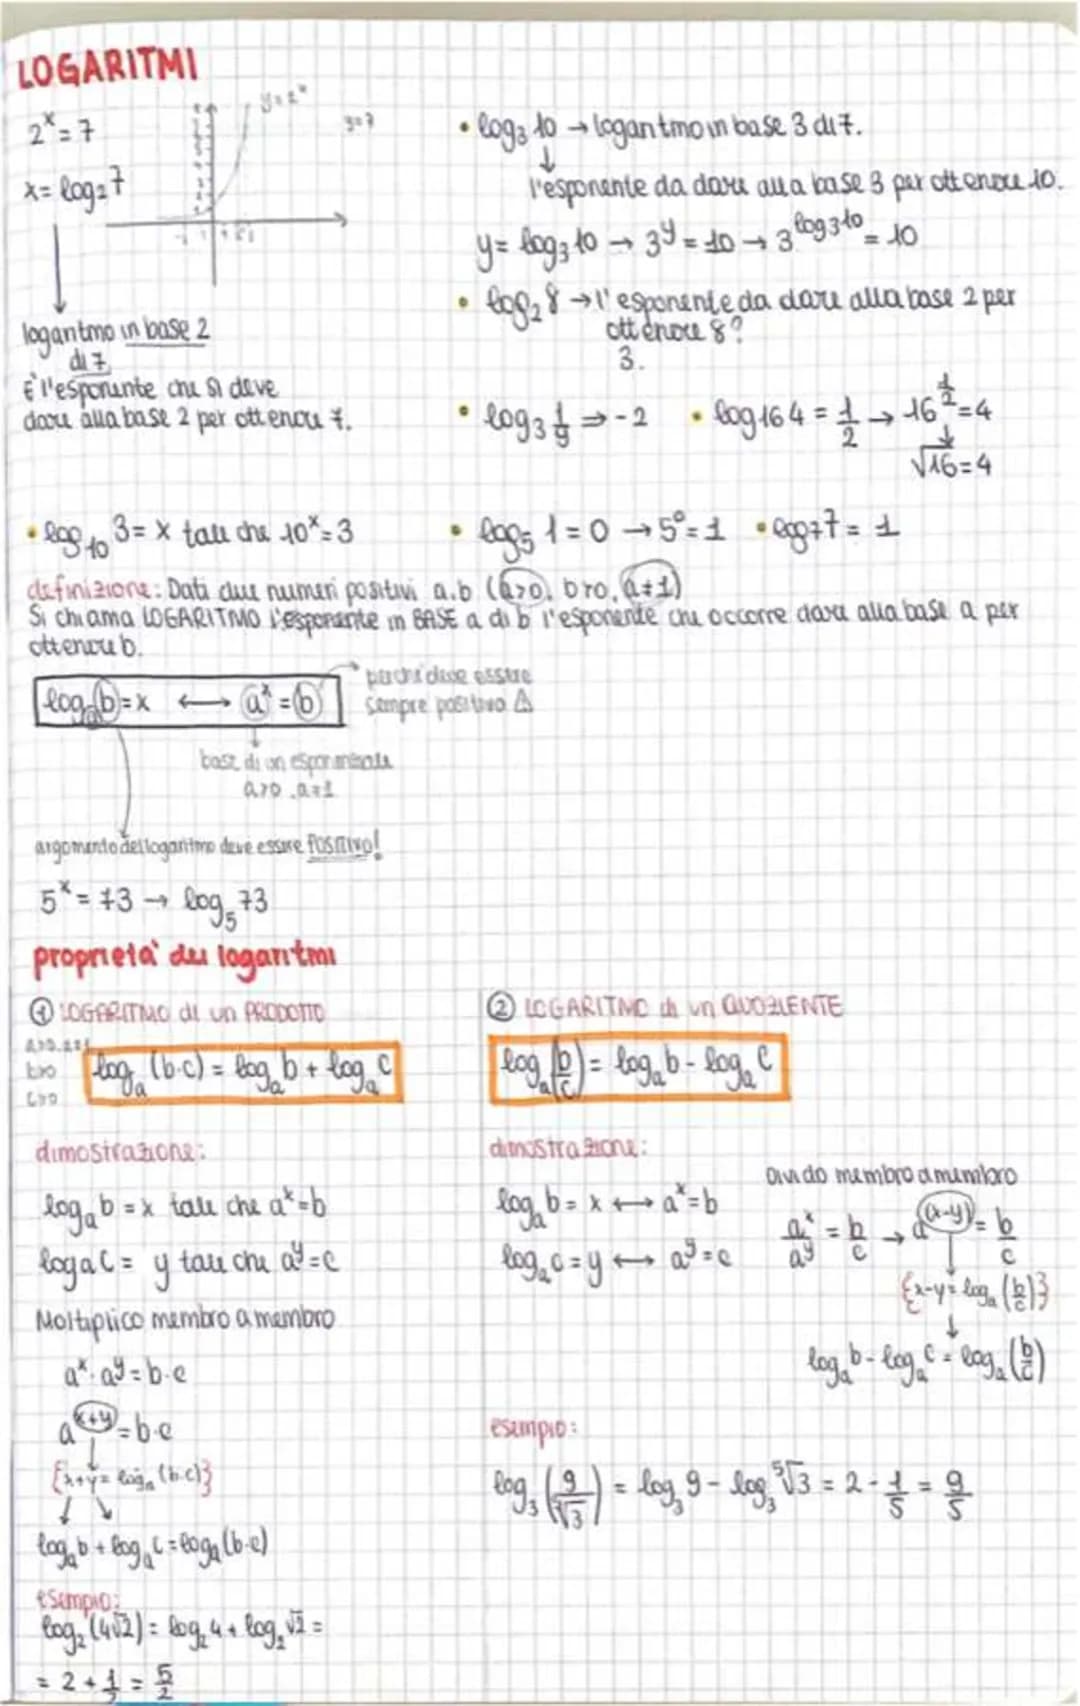 LOGARITMI
2^x = 7
y = 2^x
y=7
x = log₂7
logaritmo in base 2
di 7
È l'esponente che si deve
dare alla base 2 per ottenere 7.
• log₃ 10 → logaritmo in base 3 di 7.
↓
l'esponente da dare alla base 3 per ottenere 10.
y = log₃ 10 → 3^y = 10 → 3^(log₃10) = 10
• log₂ 8 → l'esponente da dare alla base 2 per
ottenere 8?
3.
• log₃ 1/9 ⇒ -2 • log16 4 = 1/2 → 16^(1/2) = 4
√16 = 4
• log₁₀ 3 = x tale che 10^x = 3 • log₅ 1 = 0 → 5⁰ = 1 • log₇7 = 1
definizione: Dati due numeri positivi a.b (a>0, b>0, a≠1)
Si chiama LOGARITMO l'esponente in BASE a di b l'esponente che occorre dare alla base a per
ottenere b.
log_a b = x ⟷ a^x = b
perché deve essere
sempre positivo ⚠
base di un esponenziale
a>0, a≠1
argomento del logaritmo deve essere POSITIVO!
5^x = 73 → log₅ 73
proprietà dei logaritmi
① LOGARITMO di un PRODOTTO
a>0, a≠1
b>0
c>0
log_a (b·c) = log_a b + log_a c
dimostrazione:
log_a b = x tale che a^x = b
log a C = y tale che a^y = c
Moltiplico membro a membro
a^x · a^y = b·c
a^(x+y) = b·c
{x+y = log_a (b·c)}
log_a b + log_a c = log_a (b·c)
esempio:
log₂ (4√2) = log₂ 4 + log₂ √2 =
= 2 + 1/2 = 5/2
② LOGARITMO di un QUOZIENTE
log_a (b/c) = log_a b - log_a c
dimostrazione:
log_a b = x ⟷ a^x = b
log_a c = y ⟷ a^y = c
divido membro a membro
a^x/a^y = b/c → a^(x-y) = b/c
{x-y = log_a (b/c)}
↓
log_a b - log_a c = log_a (b/c)
esempio:
log₃ (9/⁵√3) = log₃ 9 - log₃ ⁵√3 = 2 - 1/5 = 9/5